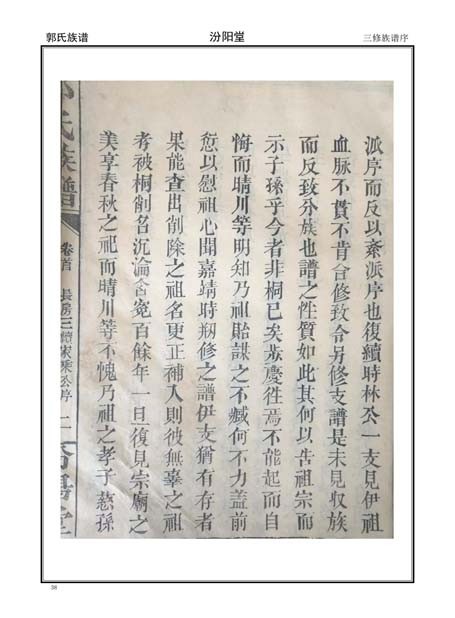 郭氏族谱
汾阳堂
三修族谱序
派序而反以紊派序也復續時林公一支見伊祖
血脉不貫不肯合修致令另修支譜是未見収族
而反致分族也譜之性質如此其何以告祖宗而
示子孫乎今者非桐已矣慶徃焉不能起而自
悔而晴川等明知乃祖貽謀之不臧何不力蓋前
愆以慰祖心聞嘉靖時剏修之譜伊支猶有存者
果能查出削除之祖名更正補入則彼無辜之祖
考被桐削名沉淪含寃百餘年一旦復見宗廟之
美享春秋之祀而晴川等不愧乃祖之孝子慈孫
氏族譜
卷首
長房三續家乘公序
二
38